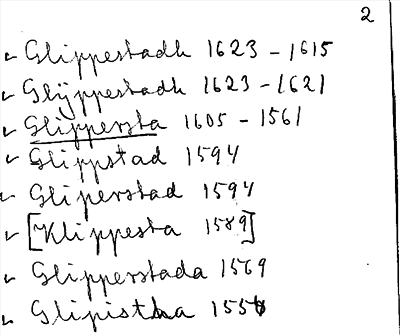 2
Glippestadh 1623 - 1615
Glÿppestadh 1623 - 1621
Glippersta 1605 - 1561
Glippstad 1594
Gliperstad 1594
[Klippesta 1589]
Glipperstada 1569
Glipistha 1556